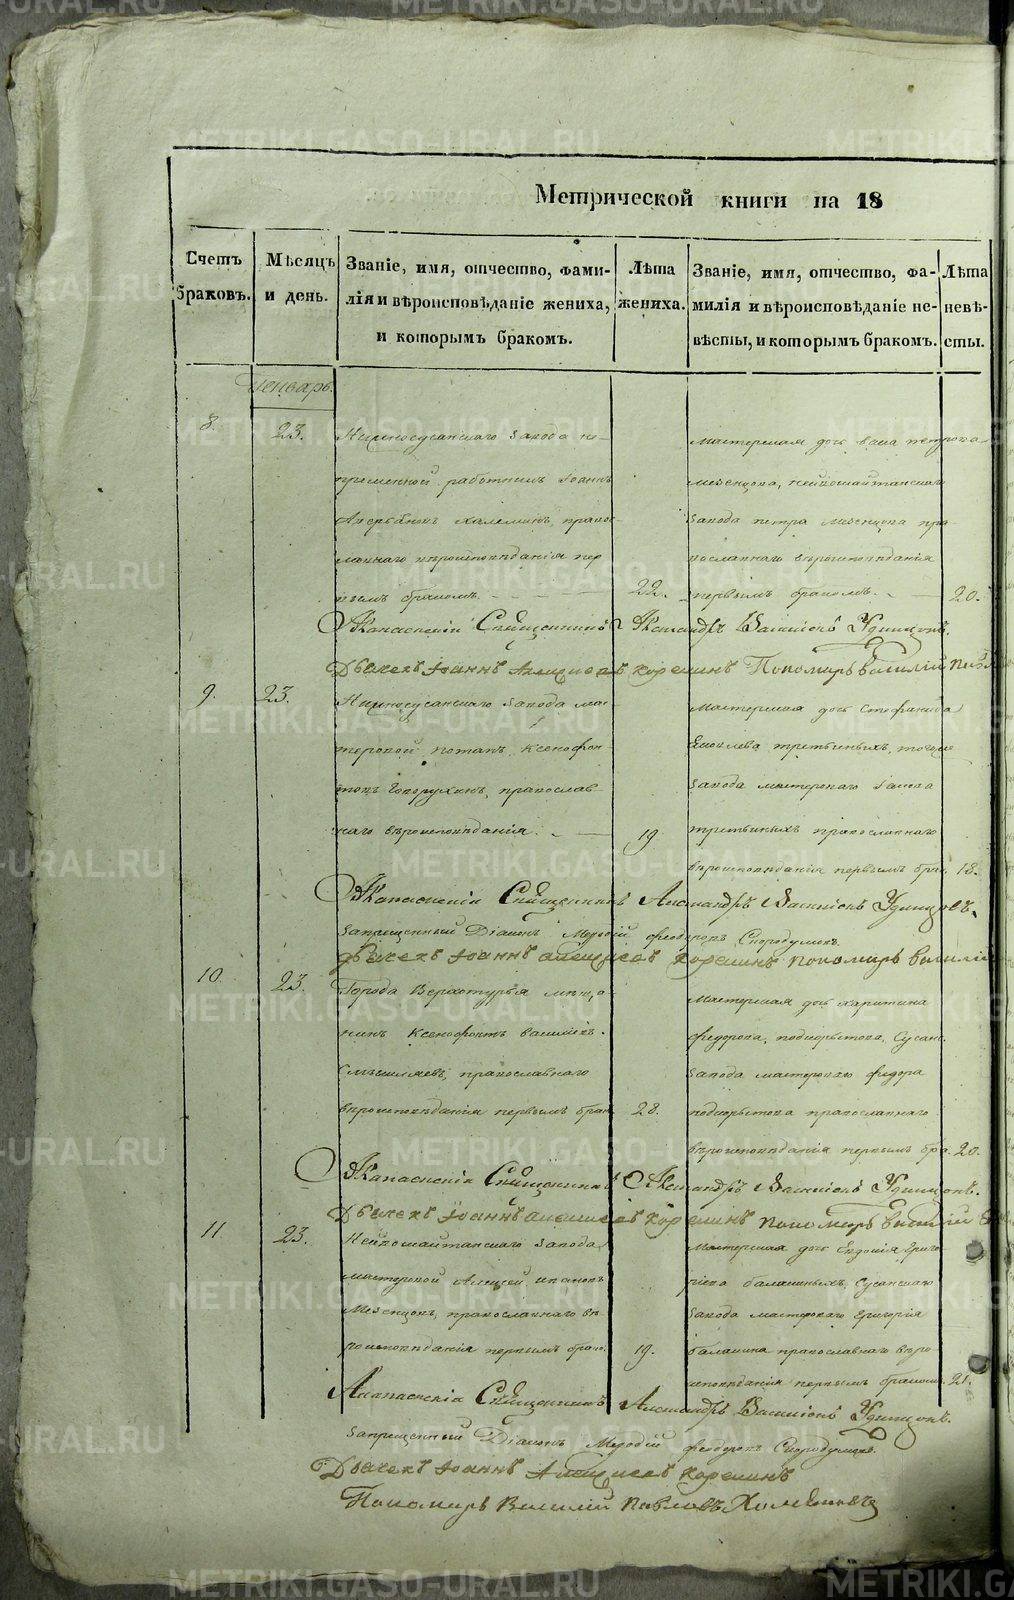 Метрической книги на 18
Счетъ браковъ.
Мѣсяцъ и день.
Званіе, имя, отчество, фами-
лія и вѣроисповѣданіе жениха,
и которымъ бракомъ.
Лѣта жениха.
Званіе, имя, отчество, фа-
милія и вѣроисповѣданіе не-
вѣсты, и которымъ бракомъ.
Лѣта невѣ-
сты.
Генварь.
8.
23.
Нижносусанскаго завода не-
пременной работникъ Іоаннъ
православ-
наго вѣроисповѣданія пер
вымъ бракомъ.
22.
Мастерская дочь
Мезенцова, Нейвошайтанскаго
завода Петра Мезенцова пра-
вославнаго вѣроисповѣданія
первымъ бракомъ.
20.
Священникъ Александръ Васильевъ Удинцовъ.
Дьячекъ Іоаннъ Алексѣевъ Корелинъ Пономарь Василій
9.
23.
Нижносусанскаго завода мас-
теровой Потапъ Ксенофон
товъ Говорухинъ, православ
наго вѣроисповѣданія.
19.
Мастерская дочь Стефанида
Яковлева Третьиныхъ, тогоже
завода мастероваго Іакова
Третьиныхъ православнаго
вѣроисповѣданія первымъ бра.
18.
Священникъ Александръ Васильевъ Удинцовъ.
Запрещенный Діаконъ Меѳодій Феодоровъ Скородумовъ.
Дьячекъ Іоаннъ Алексѣевъ Корелинъ Пономарь Василій
10.
23.
Города Верхотурья мѣща-
нинъ Ксенофонтъ Васильевъ
Смышляевъ, православнаго
вѣроисповѣданія первымъ брак
28.
Мастерская дочь Харитина
Федорова, Подкорытова, Сусанс.
завода мастероваго Федора
Подкорытова православнаго
вѣроисповѣданія первымъ бра.
20.
Священникъ Александръ Васильевъ Удинцовъ.
Дьячекъ Іоаннъ Алексѣевъ Корелинъ Пономарь Василій
11
23.
Нейвошайтанскаго завода
мастеровой Алексей Ивановъ
Мезенцовъ, православнаго вѣ
роисповѣданія первымъ брако.
19.
Мастерская дочь Евдокія Григо
ріева Балакиныхъ, Сусанскаго
завода мастероваго Григорія
Балакина православнаго вѣро-
исповѣданія первымъ бракомъ.
21.
Священникъ Александръ Васильевъ Удинцовъ.
Запрещенный Діаконъ Меѳодій Феодоровъ Скородумовъ.
Дьячекъ Іоаннъ Алексѣевъ Корелинъ
Пономарь Василій Павловъ
METRIKI.GASO-URAL.RU